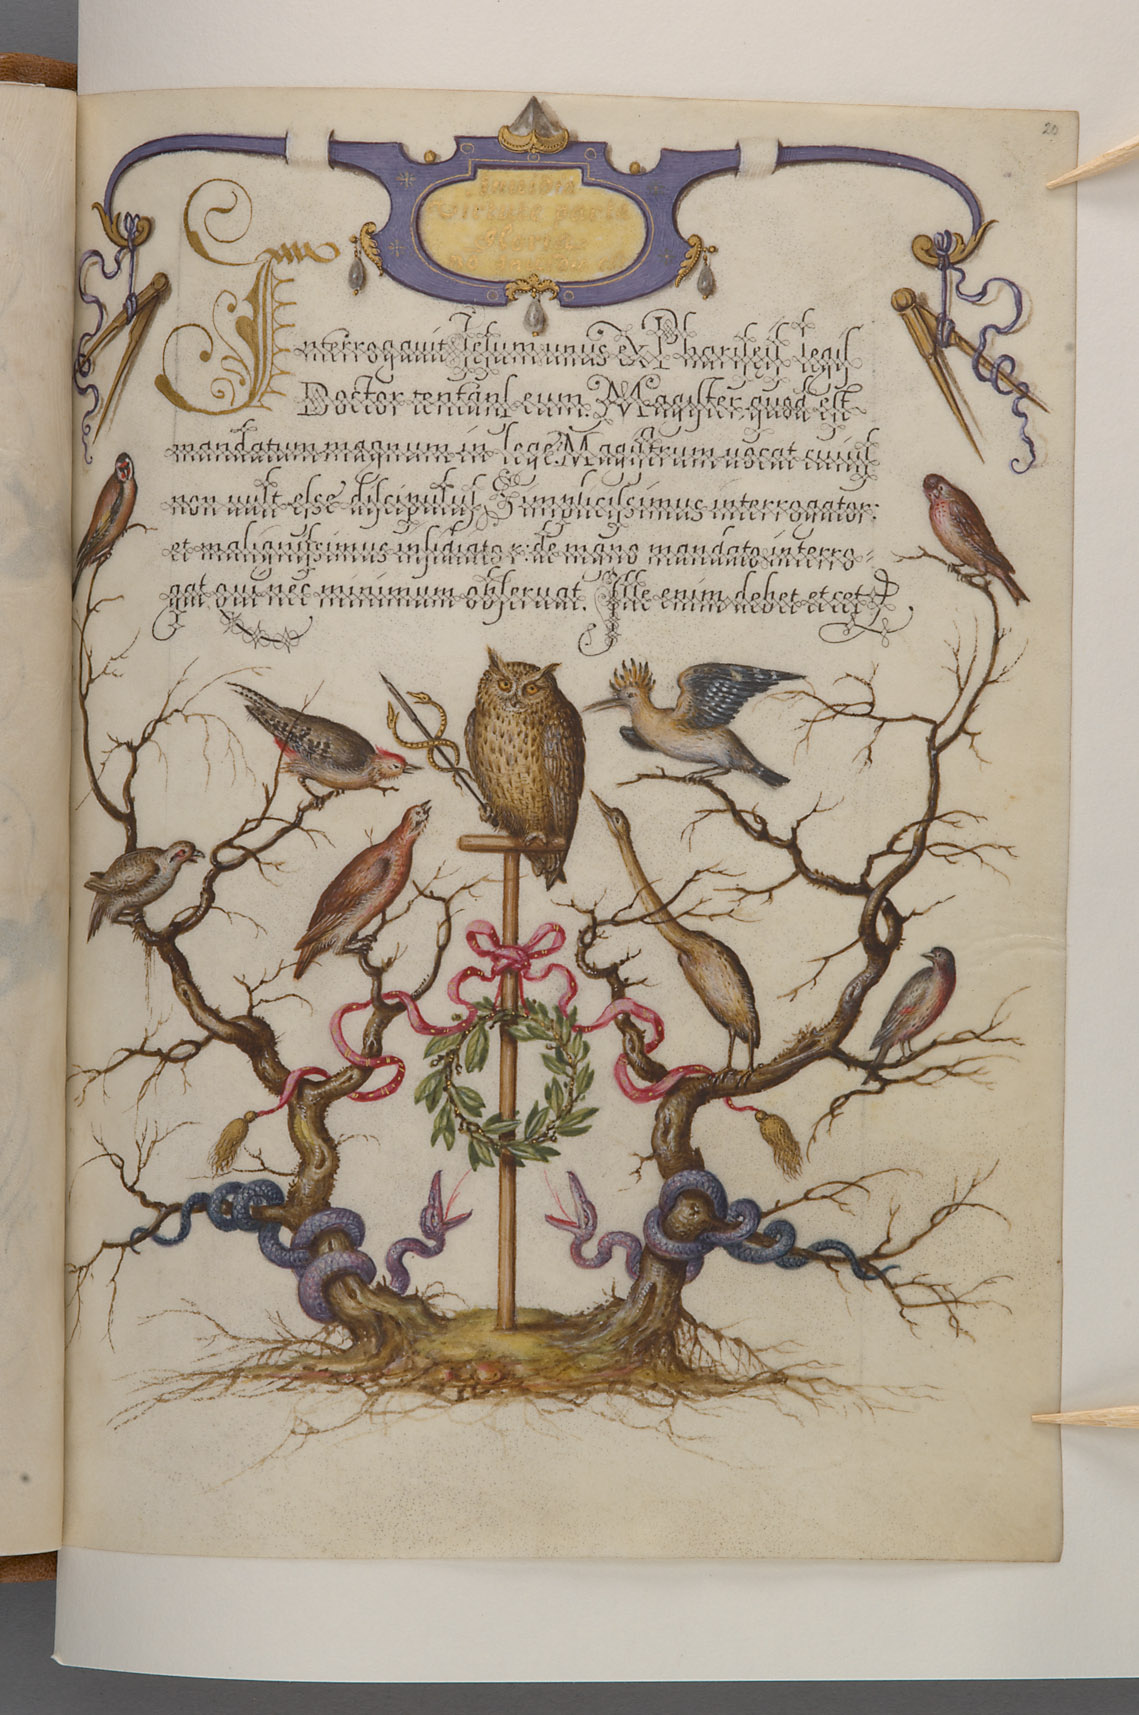 20
Invidia
Virtute parta
Gloria
Interrogavit Iesum unus ex Phariseis legis
Doctor tentans eum. Magister, quod est
mandatum magnum in lege. Magistrum vocat cuius
non vult esse discipulus, Simplicissimus interrogator:
et malignissimus insidiator: de mano mandato interro=
gat qui nec minimum observat. Ille enim debet et cet